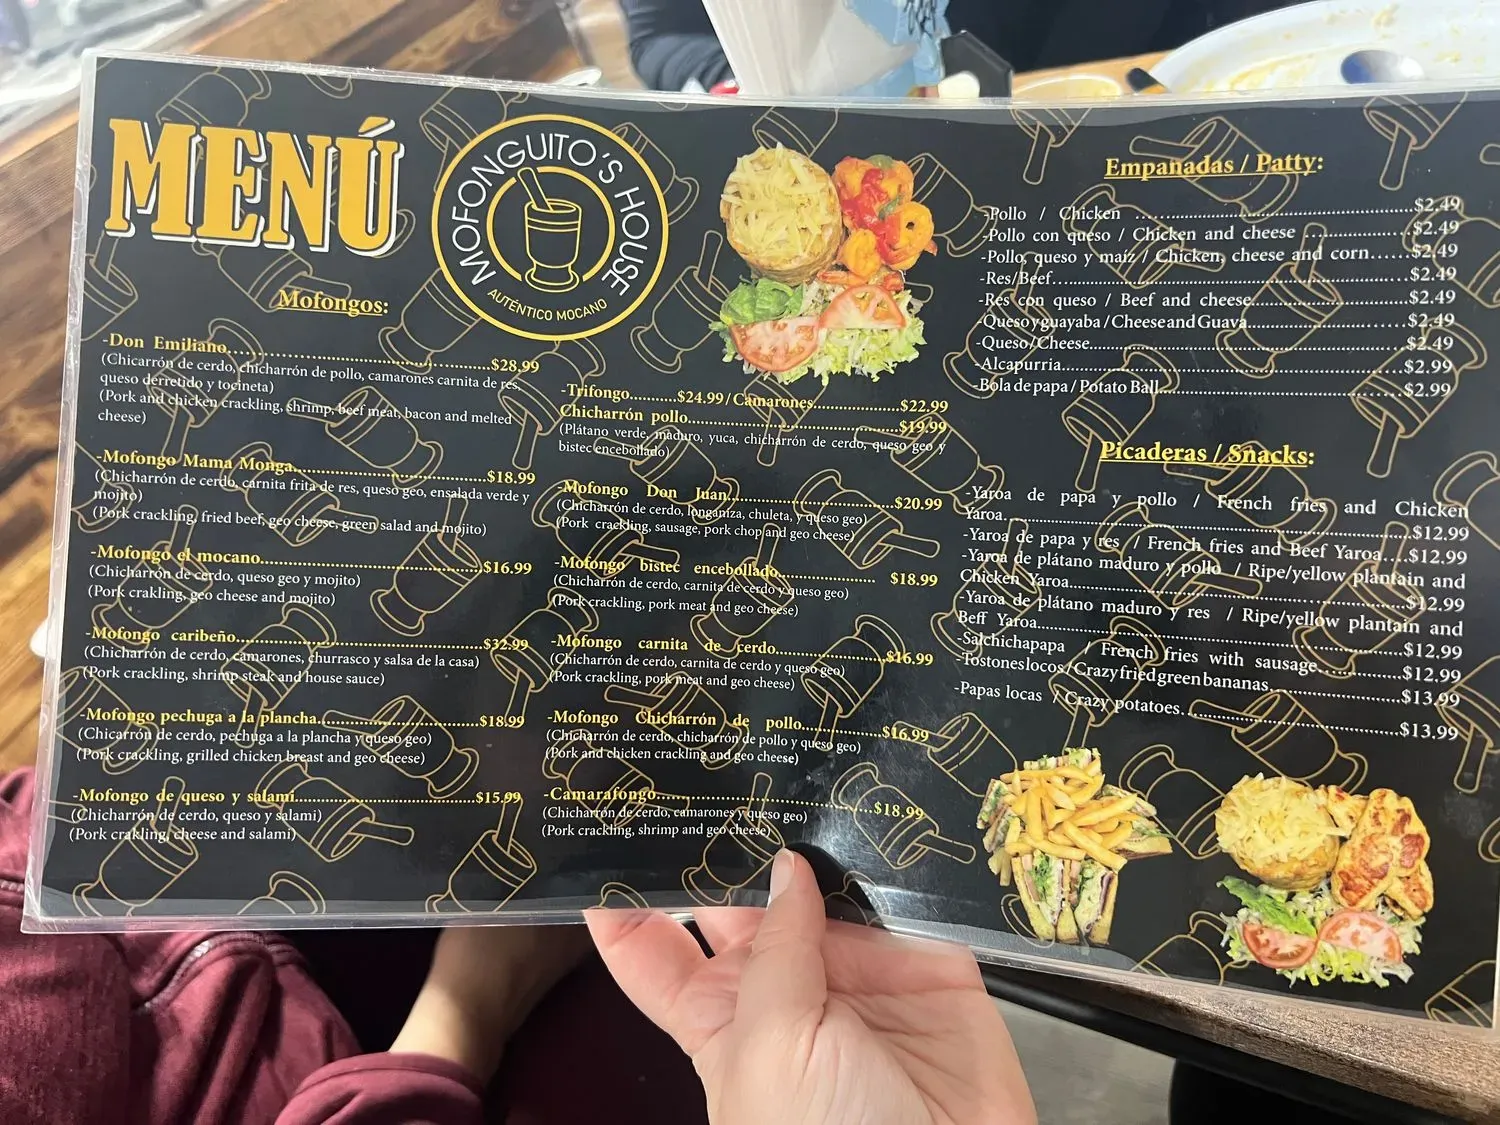 MENÚ
MOFONGUITO'S HOUSE
AUTÉNTICO MOCANO
Mofongos:
-Don Emiliano..........$28.99
(Chicarrón de cerdo, chicharrón de pollo, camarones carnita de res,
queso derretido y tocineta)
(Pork and chicken crackling, shrimp, beef meat, bacon and melted
cheese)
-Mofongo Mama Monga..........$18.99
(Chicharrón de cerdo, carnita frita de res, queso geo, ensalada verde y
mojito)
(Pork crackling, fried beef, geo cheese, green salad and mojito)
-Mofongo el mocano..........$16.99
(Chicharrón de cerdo, queso geo y mojito)
(Pork crakling, geo cheese and mojito)
-Mofongo caribeño..........$32.99
(Chicharrón de cerdo, camarones, churrasco y salsa de la casa)
(Pork crackling, shrimp steak and house sauce)
-Mofongo pechuga a la plancha..........$18.99
(Chicarrón de cerdo, pechuga a la plancha y queso geo)
(Pork crackling, grilled chicken breast and geo cheese)
-Mofongo de queso y salami..........$15.99
(Chicharrón de cerdo, queso y salami)
(Pork crakling, cheese and salami)
-Trifongo..........$24.99 / Camarones..........$22.99
Chicharrón pollo..........$19.99
(Plátano verde, maduro, yuca, chicharrón de cerdo, queso geo y
bistec encebollado)
-Mofongo Don Juan..........$20.99
(Chicharrón de cerdo, longaniza, chuleta, y queso geo)
(Pork crackling, sausage, pork chop and geo cheese)
-Mofongo bistec encebollado.......... $18.99
(Chicharrón de cerdo, carnita de cerdo y queso geo)
(Pork crackling, pork meat and geo cheese)
-Mofongo carnita de cerdo..........$16.99
(Chicharrón de cerdo, carnita de cerdo y queso geo)
(Pork crackling, pork meat and geo cheese)
-Mofongo Chicharrón de pollo..........$16.99
(Chicharrón de cerdo, chicharrón de pollo y queso geo)
(Pork and chicken crackling and geo cheese)
-Camarafongo..........$18.99
(Chicharrón de cerdo, camarones y queso geo)
(Pork crackling, shrimp and geo cheese)
Empanadas / Patty:
-Pollo / Chicken ..........$2.49
-Pollo con queso / Chicken and cheese ..........$2.49
-Pollo, queso y maíz / Chicken, cheese and corn......$2.49
-Res/Beef..........$2.49
-Res con queso / Beef and cheese..........$2.49
-Queso y guayaba / Cheese and Guava..........$2.49
-Queso/Cheese..........$2.49
-Alcapurria..........$2.99
-Bola de papa / Potato Ball..........$2.99
Picaderas / Snacks:
-Yaroa de papa y pollo / French fries and Chicken
Yaroa..........$12.99
-Yaroa de papa y res / French fries and Beef Yaroa....$12.99
-Yaroa de plátano maduro y pollo / Ripe/yellow plantain and
Chicken Yaroa..........$12.99
-Yaroa de plátano maduro y res / Ripe/yellow plantain and
Beff Yaroa..........$12.99
-Salchichapapa / French fries with sausage..........$12.99
-Tostones locos / Crazy fried green bananas..........$13.99
-Papas locas / Crazy potatoes..........$13.99